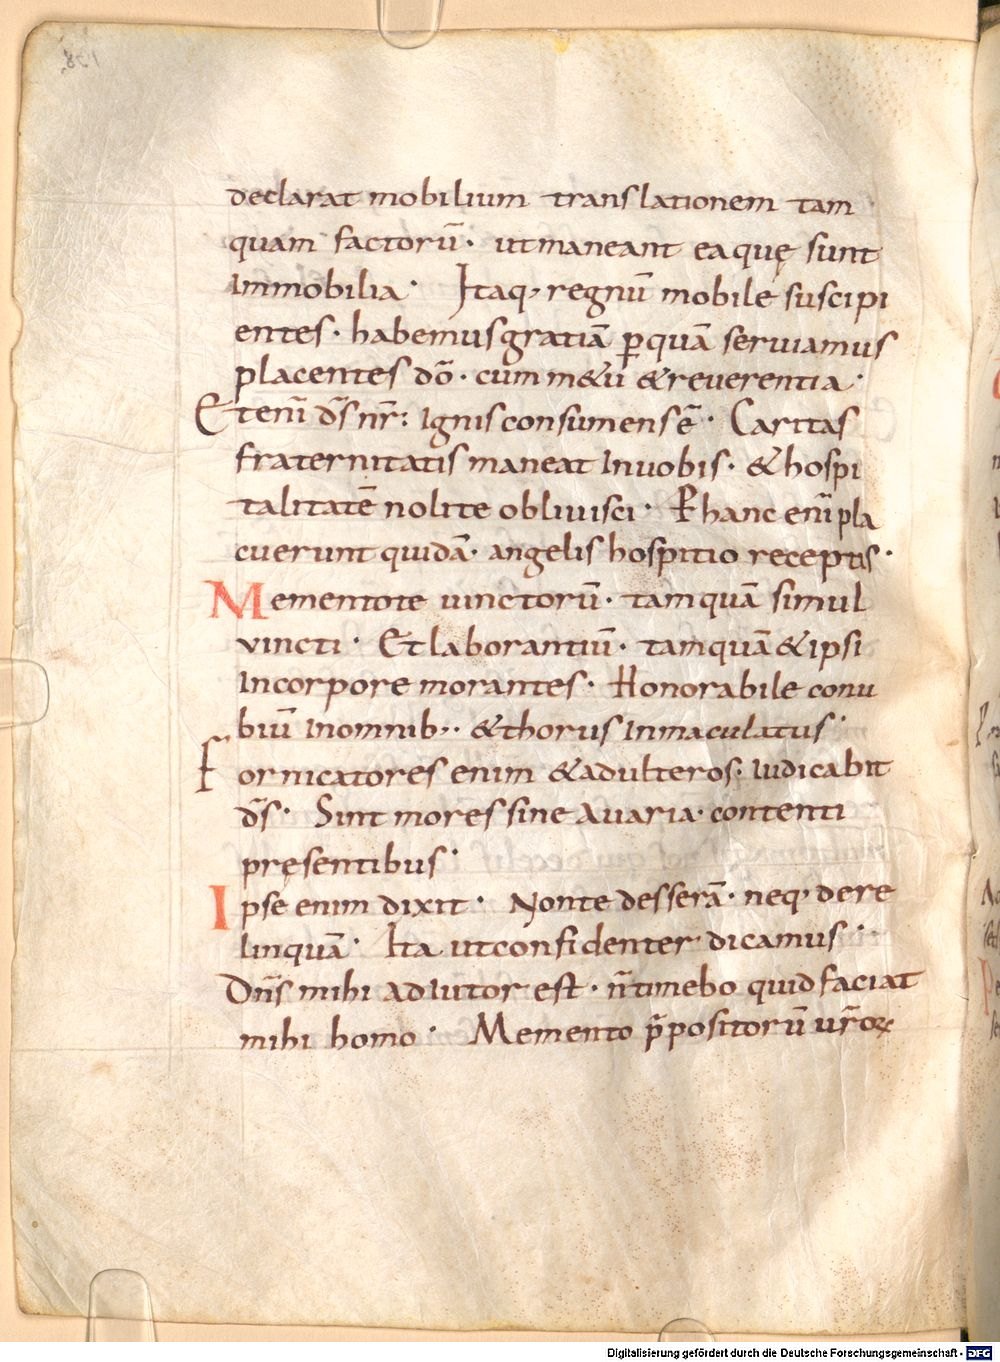 declarat mobilium translationem tam
quam factorū· ut maneant ea quę sunt
Immobilia· Itaq; regnū mobile suscipi
entes· habemus gratiā ꝑquā seruiamus
placentes dō· cum m&u & reuerentia·
Etenī d̄s nr̄: Ignis consumens ē· Caritas
fraternitatis maneat In uobis· & hospi
talitatē nolite obliuisci· Ꝑ hanc enī pla
cuerunt quidā· angelis hospitio receptis·
Mementote uinctorū· tamquā simul
vincti· Et laborantiū· tamquā & ipsi
In corpore morantes· Honorabile conu
biū In omnib;· & thorus Inmaculatus·
Fornicatores enim & adulteros· Iudicabit
d̄s· Sint mores sine Auaria· contenti
pręsentibus·
Ipse enim dixit· Non te desserā· neq; dere
linquā· Ita ut confidenter dicamus·
Dn̄s mihi Adiutor est· n̄ timebo quid faciat
mihi homo· Memento p̄positorū ur̄oꝝ
Digitalisierung gefördert durch die Deutsche Forschungsgemeinschaft - DFG